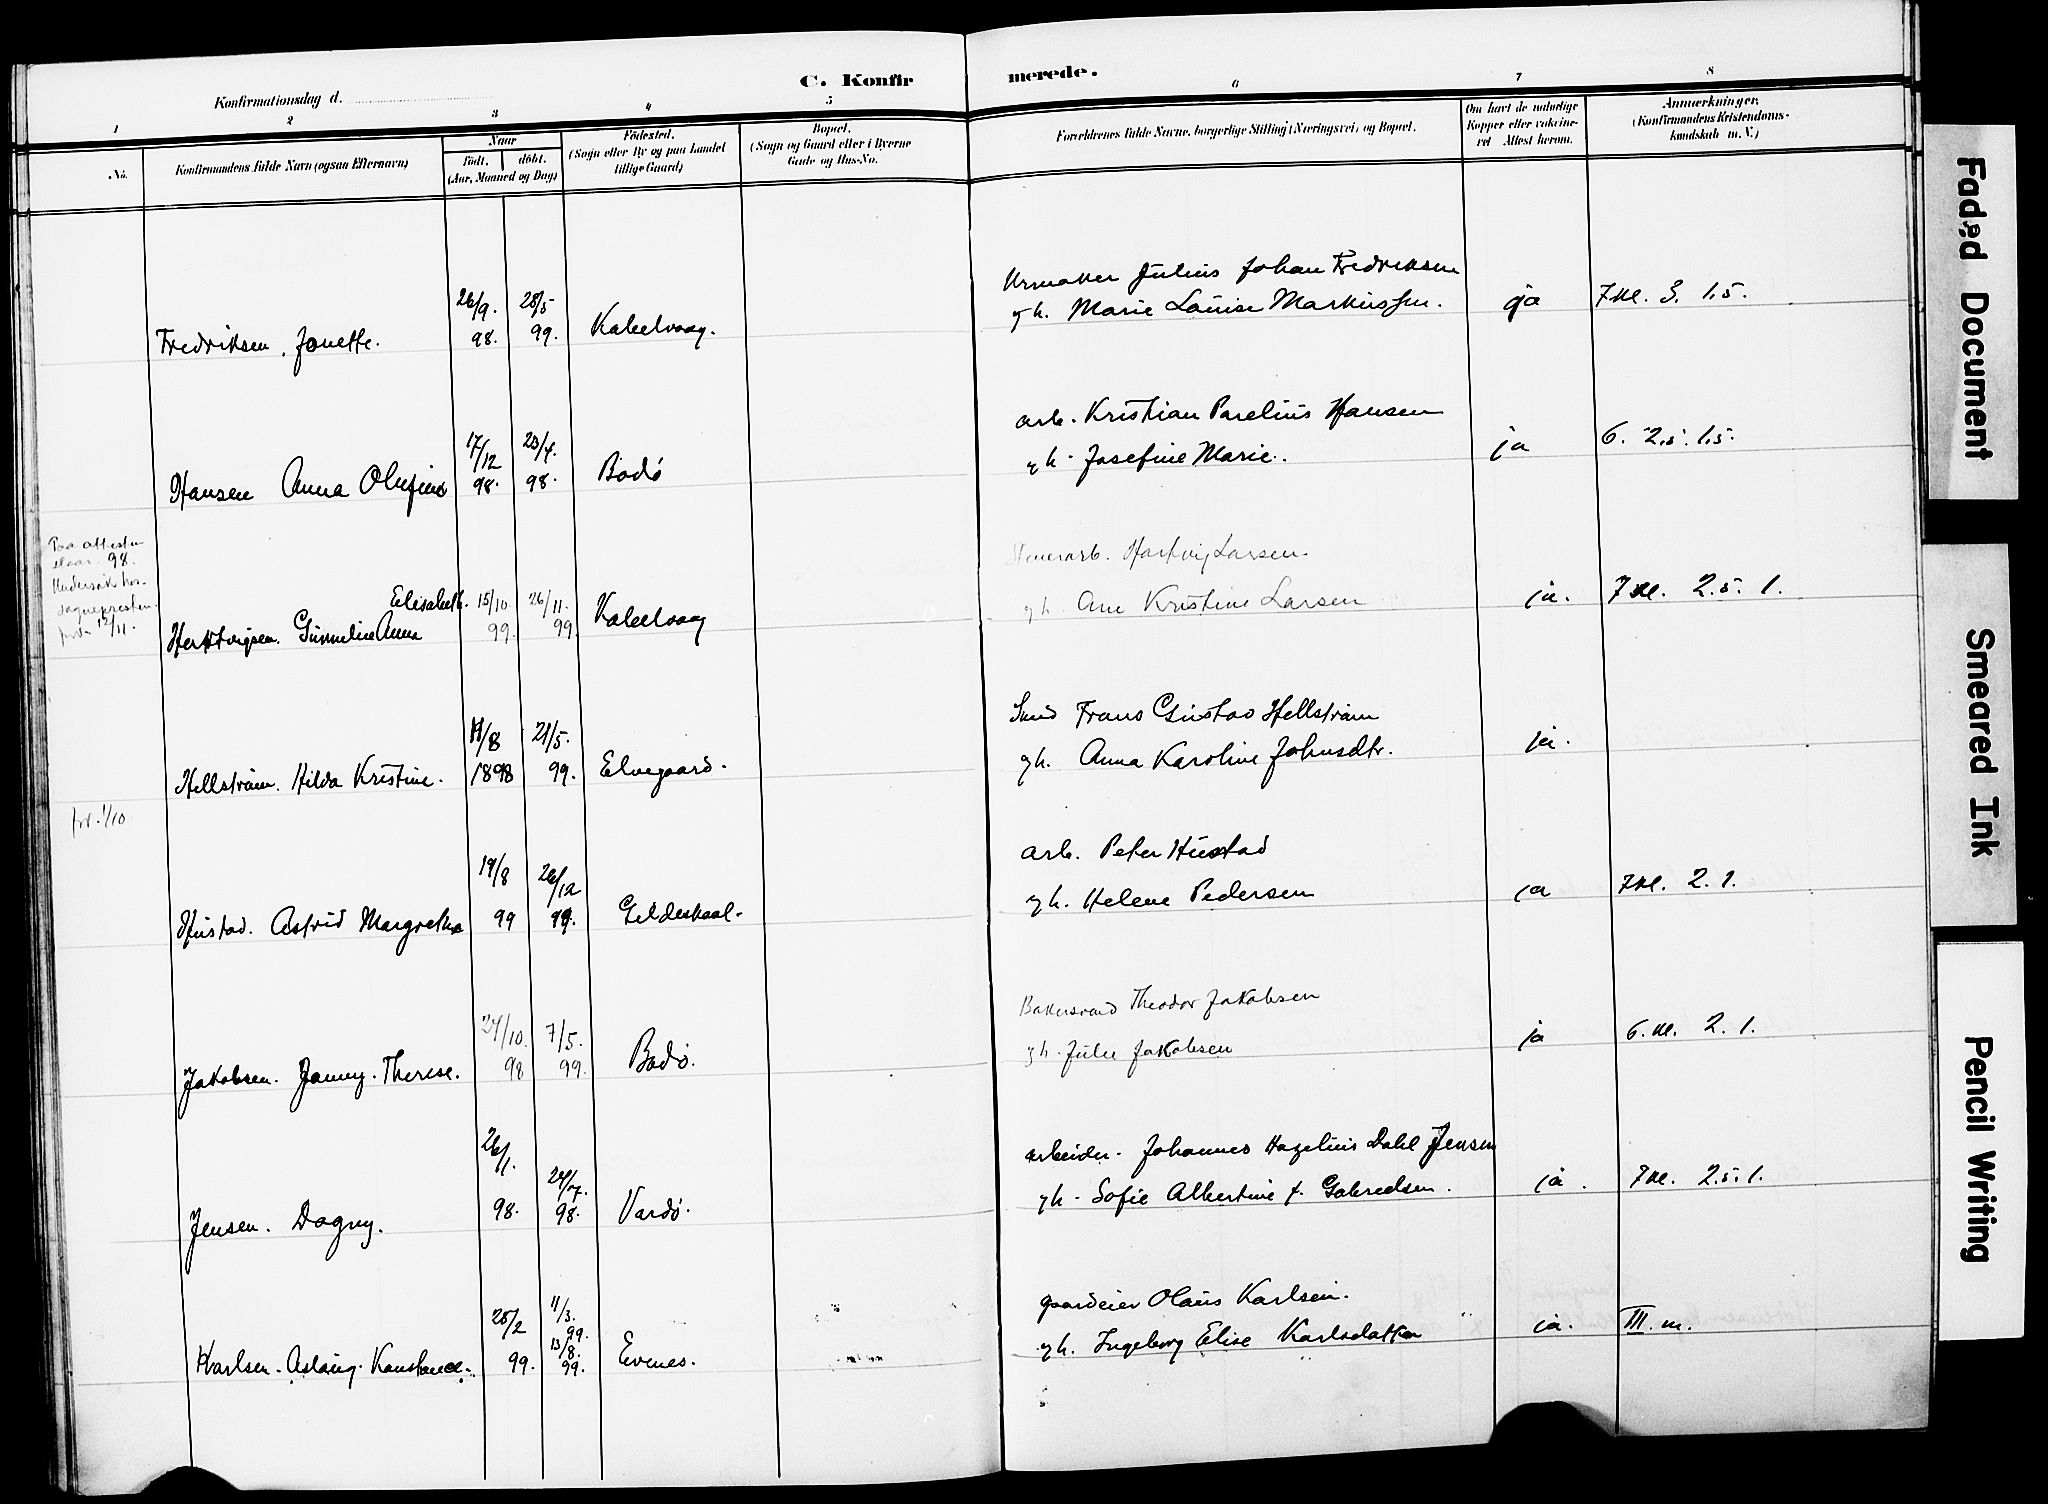 C. Konfirmerede.
Konfirmationsdag d.
1 2 3 4 5 6 7 8
No.
Konfirmandens fulde Navn (ogsaa Efternavn)
Naar
født. døbt.
(Aar, Maaned og Dag)
Fødested.
(Sogn eller By og paa Landet
tillige Gaard)
Bopæl.
(Sogn og Gaard eller i Byerne
Gade og Hus-No.
Forældrenes fulde Navne, borgerlige Stilling (Næringsvei) og Bopæl.
Om havt de naturlige
Kopper eller vaccine-
ret Attest herom.
Anmærkninger.
(Konfirmandens Kristendoms-
kundskab m. V.)
Urmaker Julius Johan Fredriksen
26/9. 28/5
gh. Marie Louise Markussen. ja 7kl. 3. 1,5.
Fredriksen, Jonette. 98. 99. Kabelvaag.
arb. Kristian Parelius Hansen
17/12 23/4.
gh. Josefine Marie. ja 6. 2,5. 1,5.
Hansen Anna Olufine 98. 98. Bodø
Paa attesten
98.
Undersøk hos
sognepresten
12/11.
Hartvig Larsen.
Elisabeth. 15/10 26/11.
gh. Ane Kristine Larsen ja. 7kl. 2.5. 1.
Hertvigsen. Gunneline Anna 99. 99. Kabelvaag
Smed Frans Gustav Hellstrøm
11/8 21/5.
gh. Anna Karoline Johnsdtr. ja.
Hellstrøm. Hilda Kristine. 1898 99. Elvegaard.
1/10.
arb. Peter Hustad
19/8 26/12
gh. Helene Pedersen ja 7kl. 2. 1.
Hustad. Astrid Margrethe 99 99. Gildeskaal.
Bakersvend Theodor Jakobsen
24/10. 7/5.
gh. Julie Jakobsen ja 6.kl. 2. 1.
Jakobsen. Jenny. Therese. 98 99. Bodø.
arbeider. Johannes Hagelius Dahl Jensen
26/1. 24/7.
gh. Sofie Albertine f. Gabrielsen. ja. 7kl. 2.5. 1.
Jensen. Dagny. 98. 98. Vardø.
gaardeier Olaus Karlsen.
25/2 11/3.
99.
13/8.
gh. Ingeborg Elise Karlsdatter ja. III. m.
Karlsen. Aslaug. Konstance. 99. 99. Evenes.
Faded Document
Smeared Ink
Pencil Writing